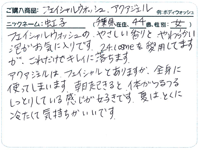 ご購入商品:フェイシャルウォッシュ、アクアジェル 例:ボディウォッシュ
ニックネーム:虹子 千葉県在住、44歳、性別:女
フェイシャルウォッシュのやさしい香りとやわらかい
泡がお気に入りです。24.comを愛用してますが、
これだけでキレイに落ちます。
アクアジェルはフェイシャルとありますが、全身に
使ってしまいます。朝起きると体がもちもち
しっとりしている感じが好きです。夏はとくに
冷たくて気持ちがいいです。